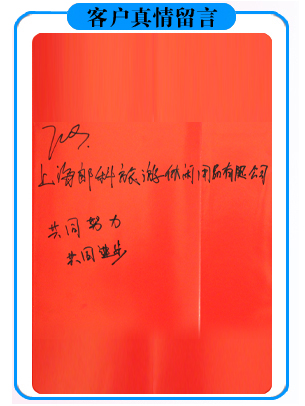 客户真情留言
上海邮科旅游休闲用品有限公司
共同努力
共同进步